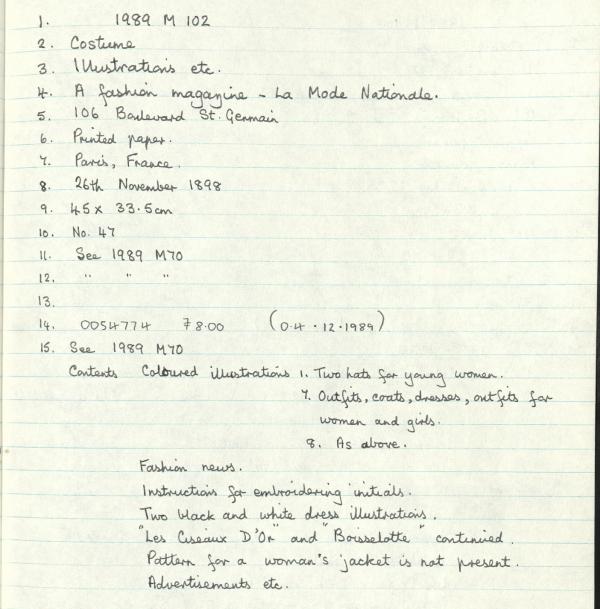 1. 1989 M 102
2. Costume
3. Illustrations etc.
4. A fashion magazine - La Mode Nationale.
5. 106 Boulevard St. Germain
6. Printed paper.
7. Paris, France.
8. 26th November 1898
9. 45 x 33.5cm
10. No. 47
11. See 1989 M70
12. " " "
13.
14. 0054774 ₣8.00 (04.12.1989)
15. See 1989 M70
Contents Coloured illustrations 1. Two hats for young women.
7. Outfits, coats, dresses, outfits for
women and girls.
8. As above.
Fashion news.
Instructions for embroidering initials.
Two black and white dress illustrations.
"Les Ciseaux D'Or" and "Boisselotte" continued.
Pattern for a woman's jacket is not present.
Advertisements etc.